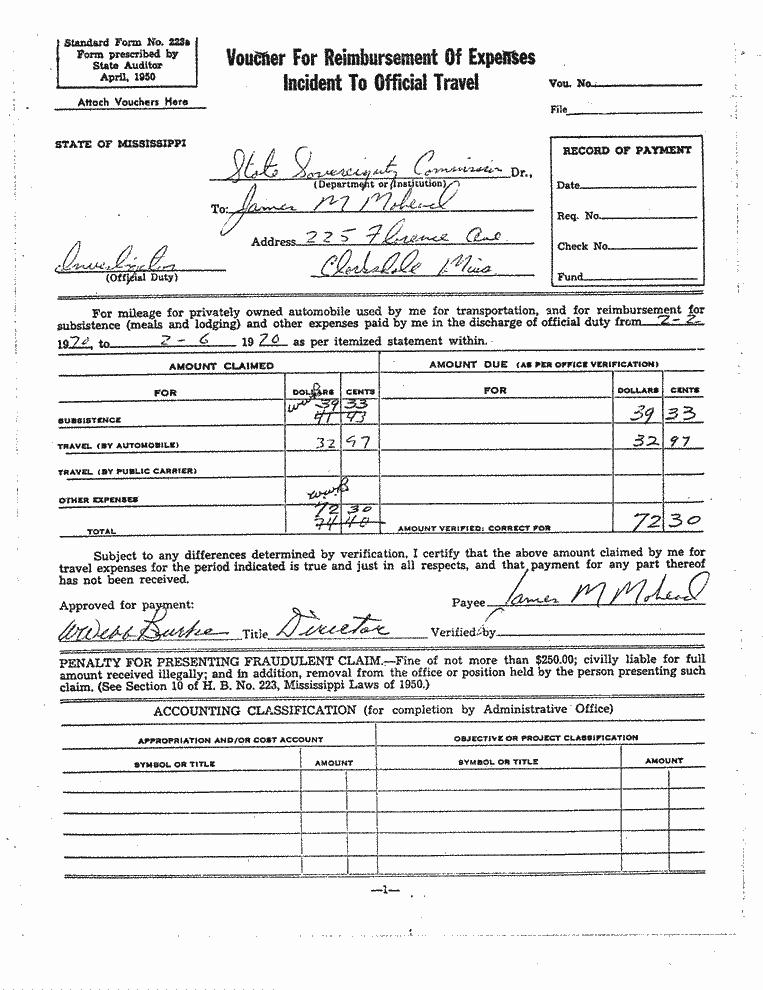 Standard Form No. 223a
Form prescribed by
State Auditor
April, 1950
Attach Vouchers Here
Voucher For Reimbursement Of Expenses
Incident To Official Travel
Vou. No.
File
STATE OF MISSISSIPPI
State Sovereignty Commission Dr.,
(Department or Institution)
To: James M Mohead
Address 225 Florence Ave
Clarksdale Miss
Investigator
(Official Duty)
RECORD OF PAYMENT
Date
Req. No.
Check No.
Fund
For mileage for privately owned automobile used by me for transportation, and for reimbursement for
subsistence (meals and lodging) and other expenses paid by me in the discharge of official duty from 2-2
1970, to 2-6 1970 as per itemized statement within.
AMOUNT CLAIMED
AMOUNT DUE (AS PER OFFICE VERIFICATION)
FOR DOLLARS CENTS FOR DOLLARS CENTS
WWB 39 33
SUBSISTENCE 41 43 39 33
TRAVEL (BY AUTOMOBILE) 32 97 32 97
TRAVEL (BY PUBLIC CARRIER)
OTHER EXPENSES WWB
72 30
TOTAL 74 40 AMOUNT VERIFIED: CORRECT FOR 72 30
Subject to any differences determined by verification, I certify that the above amount claimed by me for
travel expenses for the period indicated is true and just in all respects, and that payment for any part thereof
has not been received.
Approved for payment: Payee James M Mohead
W Webb Burke Title Director Verified by
PENALTY FOR PRESENTING FRAUDULENT CLAIM.—Fine of not more than $250.00; civilly liable for full
amount received illegally; and in addition, removal from the office or position held by the person presenting such
claim. (See Section 10 of H. B. No. 223, Mississippi Laws of 1950.)
ACCOUNTING CLASSIFICATION (for completion by Administrative Office)
APPROPRIATION AND/OR COST ACCOUNT OBJECTIVE OR PROJECT CLASSIFICATION
SYMBOL OR TITLE AMOUNT SYMBOL OR TITLE AMOUNT
—1—